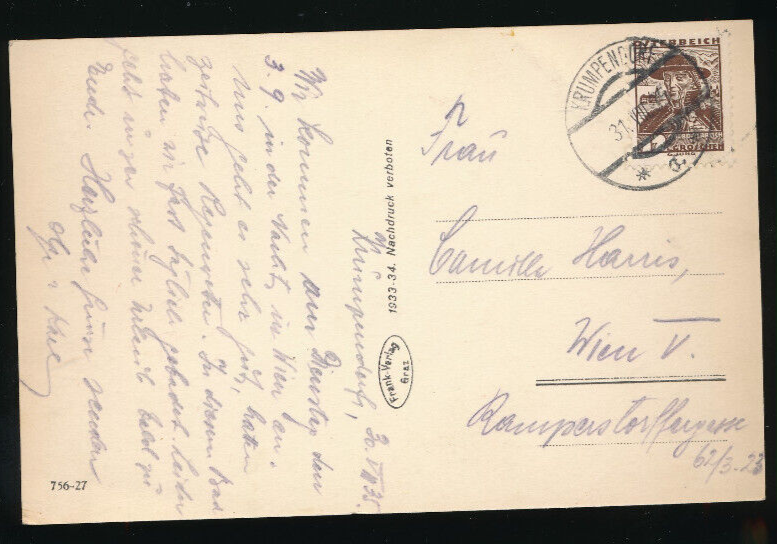 Krumpendorf, 30. VIII 35.
Wir kommen am Dienstag den
3. 9. in der Nacht in Wien an.
Uns geht es sehr gut, hatten
Regenwetter. In diesem Bad
haben wir fast täglich gebadet. Leider
geht unser schöner Urlaub bald zu
Ende. Herzliche Grüsse senden
1933-34. Nachdruck verboten
Frank-Verlag
Graz
756-27
ÖSTERREICH
GROSCHEN
KRUMPENDORF
31. VIII
Frau
Camilla Harris,
Wien V.
Ramperstorffergasse
62/3. 23